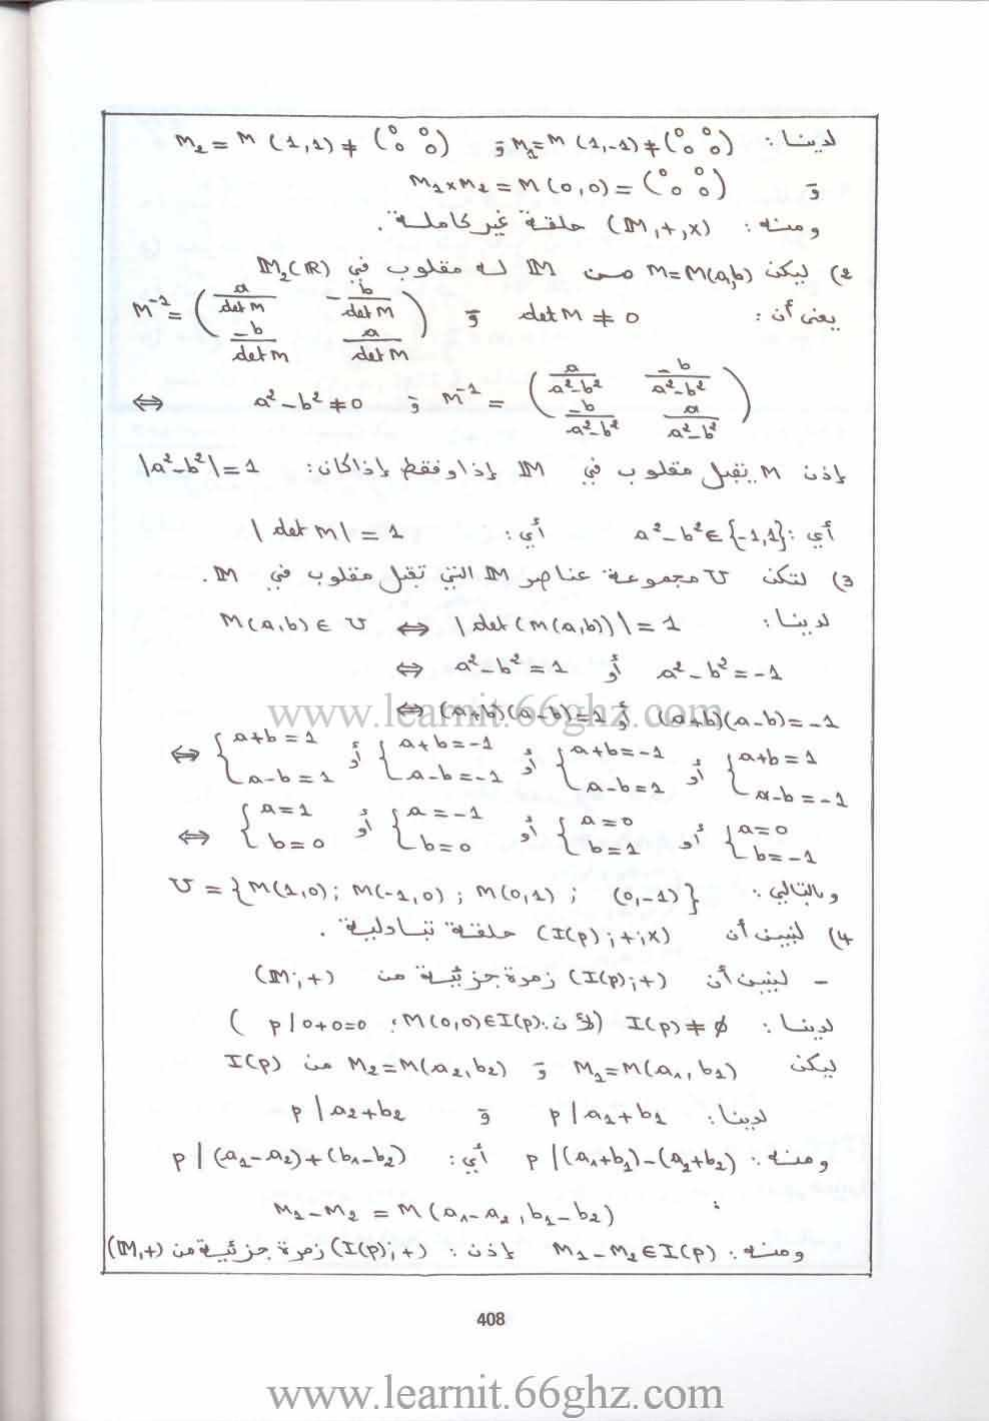 لدينا: M₁=M(1,-1)≠(0 0 0 0) و M₂=M(1,1)≠(0 0 0 0)
و M₁×M₂=M(0,0)=(0 0 0 0)
ومنه: (𝕄,+,×) حلقة غير كاملة.
2) ليكن M=M(a,b) من 𝕄 له مقلوب في 𝕄₂(ℝ)
يعني أن: det M ≠ 0 و M⁻¹=(a/det M -b/det M -b/det M a/det M)
⇔ a²-b²≠0 و M⁻¹=(a/a²-b² -b/a²-b² -b/a²-b² a/a²-b²)
إذن M يقبل مقلوب في 𝕄 إذا وفقط إذا كان: |a²-b²|=1
أي: a²-b²∈{-1,1} أي: |det M|=1
3) لتكن U مجموعة عناصر 𝕄 التي تقبل مقلوب في 𝕄.
لدينا: M(a,b)∈U ⇔ |det(M(a,b))|=1
⇔ a²-b²=1 أو a²-b²=-1
⇔ (a+b)(a-b)=1 أو (a+b)(a-b)=-1
⇔ {a+b=1 a-b=1 أو {a+b=-1 a-b=-1 أو {a+b=-1 a-b=1 أو {a+b=1 a-b=-1
⇔ {a=1 b=0 أو {a=-1 b=0 أو {a=0 b=1 أو {a=0 b=-1
وبالتالي: U={M(1,0); M(-1,0); M(0,1); (0,-1)}
4) لنبين أن (I(p);+;×) حلقة تبادلية.
- لنبين أن (I(p);+) زمرة جزئية من (𝕄;+)
لدينا: I(p)≠∅ (لأن: M(0,0)∈I(p); p|0+0=0)
ليكن M₁=M(a₁,b₁) و M₂=M(a₂,b₂) من I(p)
لدينا: p|a₁+b₁ و p|a₂+b₂
ومنه: p|(a₁+b₁)-(a₂+b₂) أي: p|(a₁-a₂)+(b₁-b₂)
: M₁-M₂=M(a₁-a₂,b₁-b₂)
ومنه: M₁-M₂∈I(p) إذن: (I(p);+) زمرة جزئية من (𝕄,+)
408
www.learnit.66ghz.com
www.learnit.66ghz.com